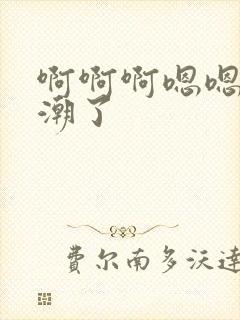 啊啊啊嗯嗯
潮了
费尔南多沃達